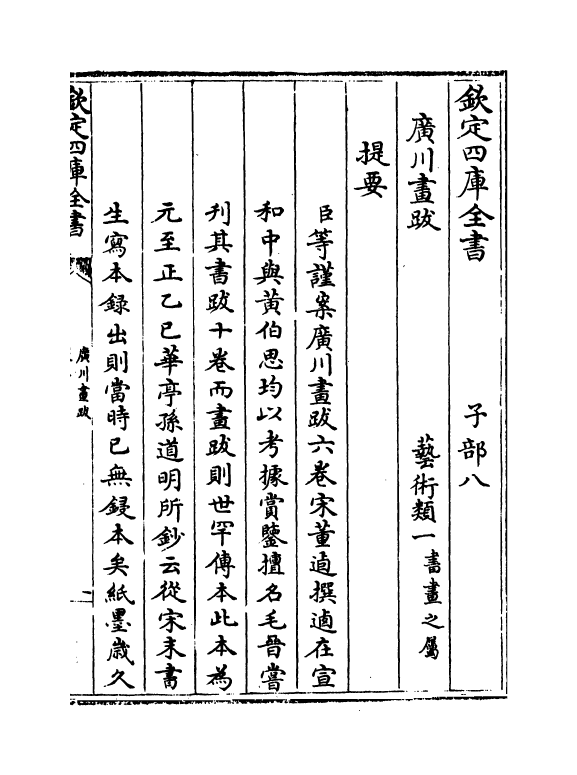 欽定四庫全書　子部八
廣川畫跋　藝術類一書畫之屬
提要
臣等謹案廣川畫跋六卷宋董逌撰逌在宣
和中與黄伯思均以考據賞鑒擅名毛晉嘗
刋其書跋十卷而畫跋則世罕傳本此本為
元至正乙巳華亭孫道明所鈔云從宋末書
生寫本録出則當時已無鋟本矣紙墨歲久
欽定四庫全書
廣川畫跋